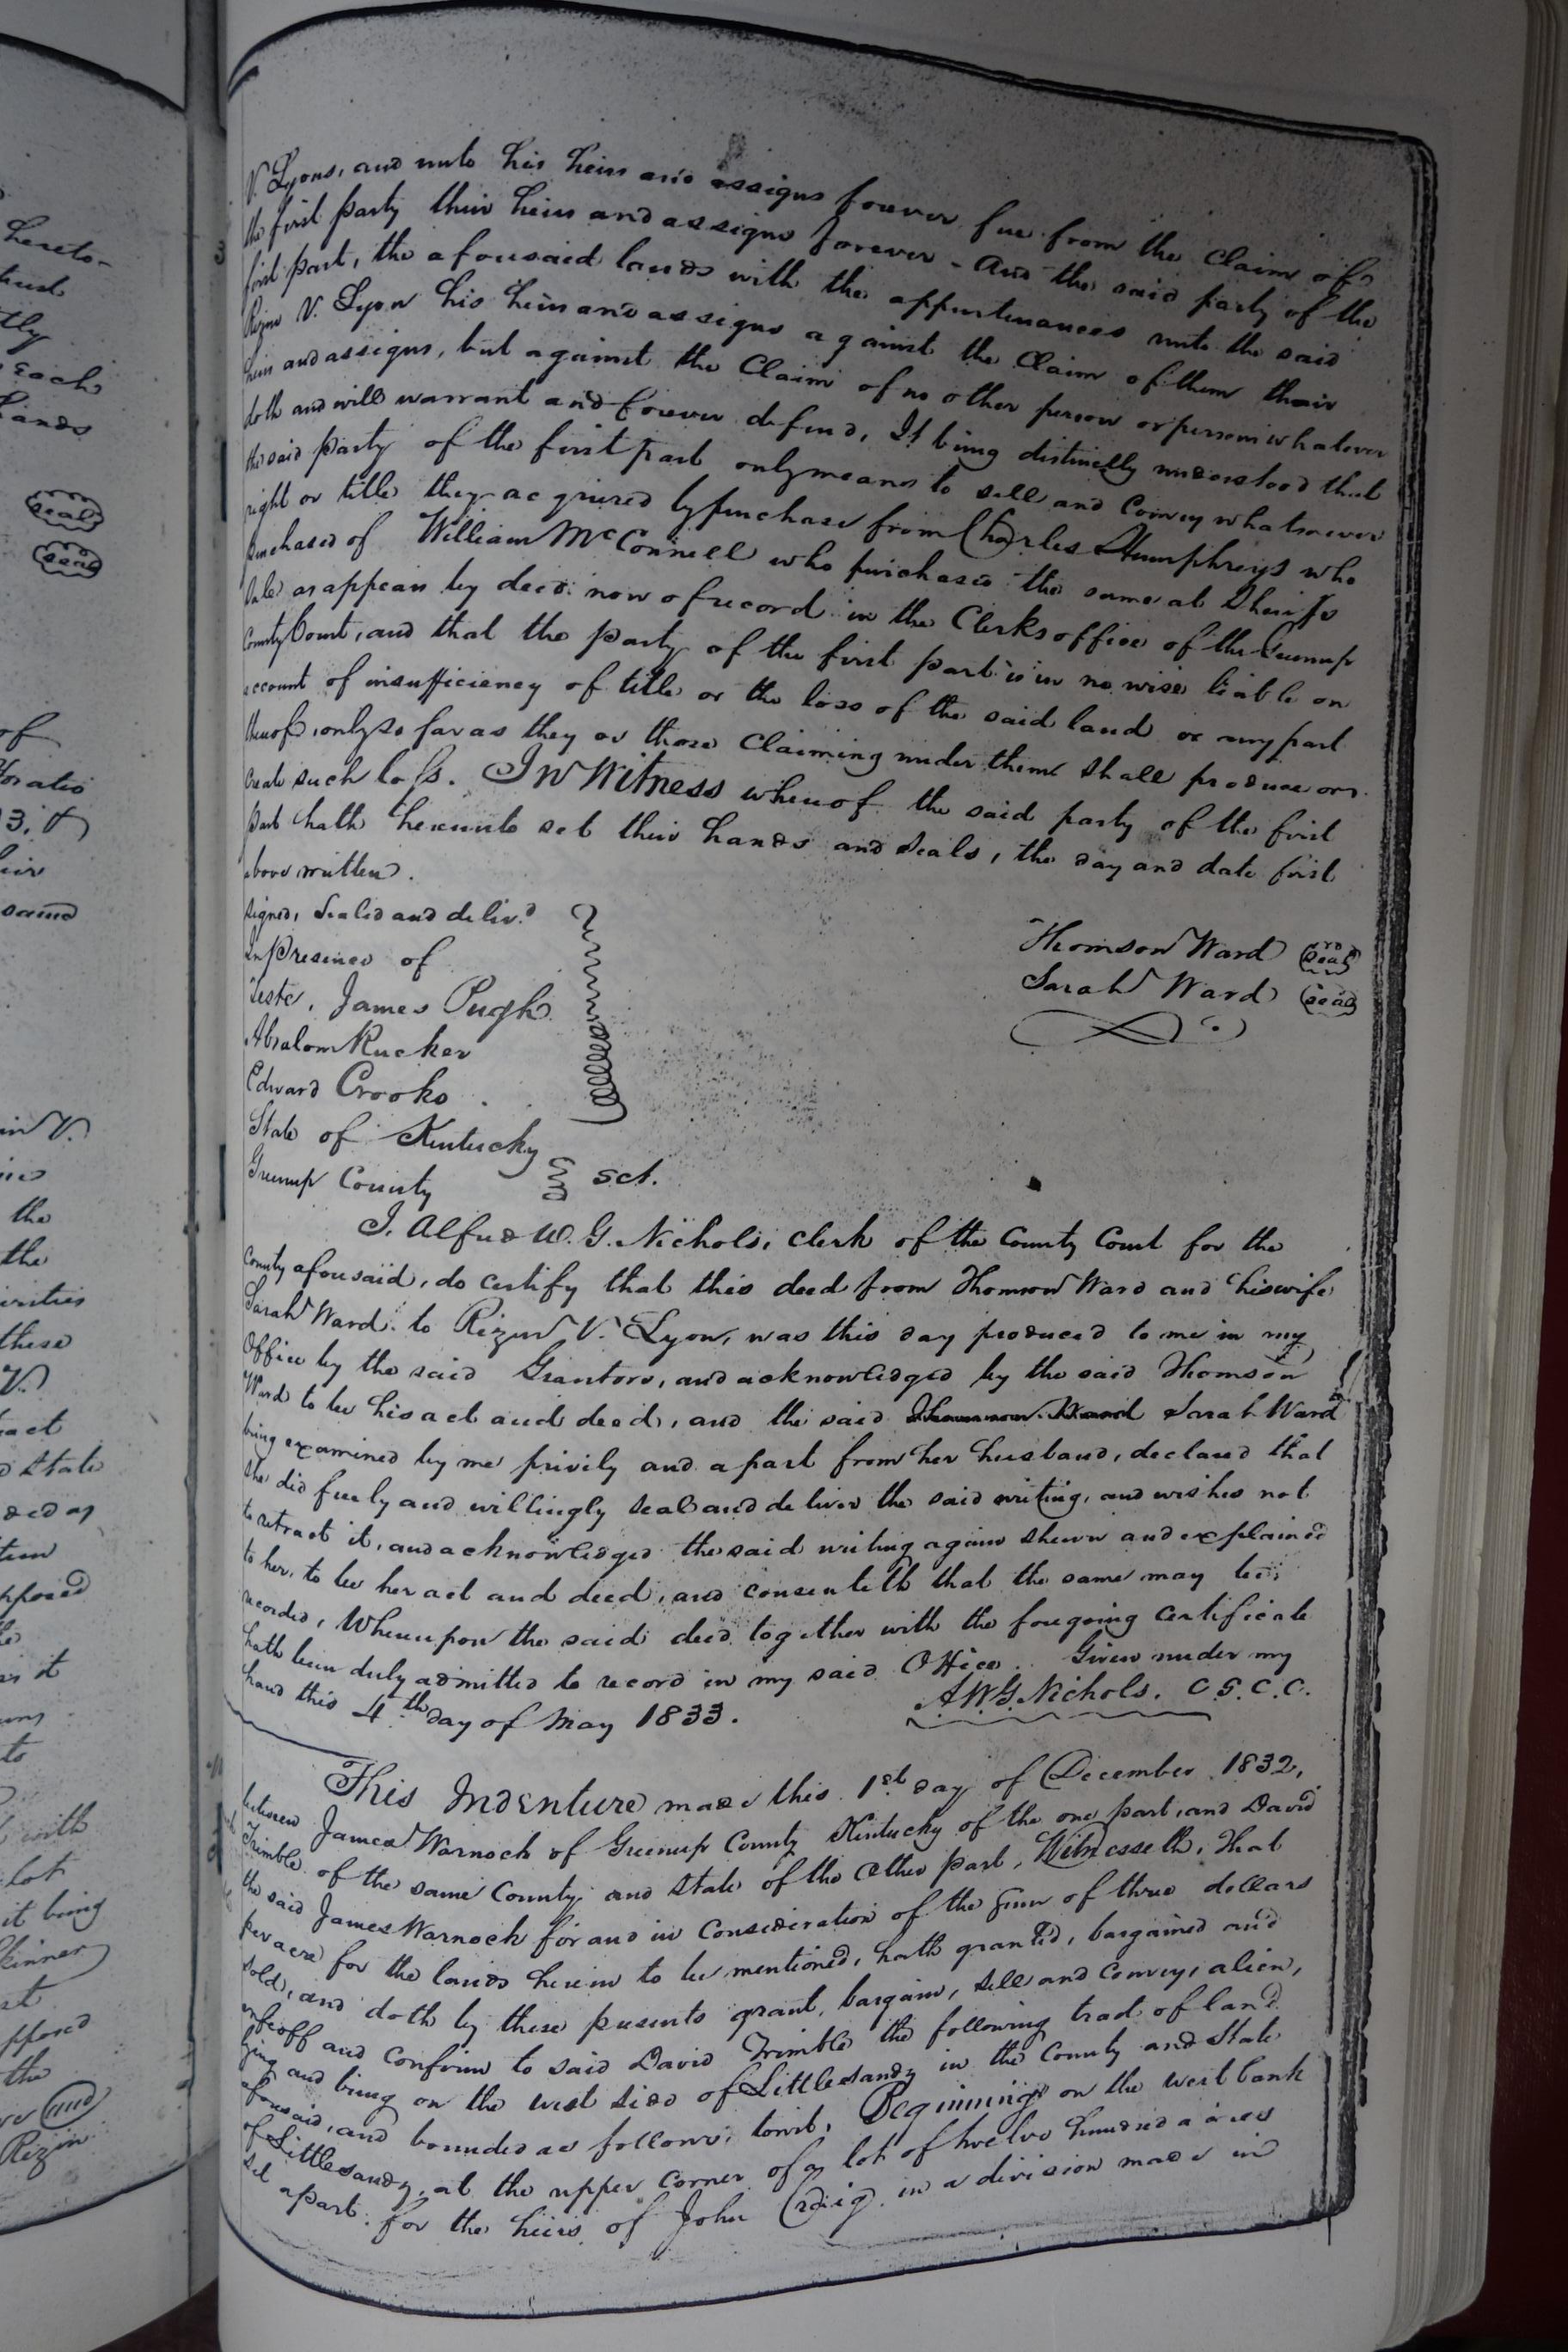 hereto-
each
hands
seal
seal
of
Horatio
same
in V.
the
the
these
V.
State
it
to
with
lot
it being
Skinner
the
and
Rizin
V. Lyons, and unto his heirs and assigns forever free from the Claim of
the first party their heirs and assigns forever - And the said party of the
first part, the aforesaid lands with the appurtenances unto the said
Rizin V. Lyon his heirs and assigns against the Claim of them their
heirs and assigns, but against the Claim of no other person or persons whatever
doth and will warrant and forever defend, It being distinctly understood that
the said party of the first part only means to sell and Convey whatsoever
right or title they acquired by purchase from Charles Humphreys who
purchased of William McConnell who purchased the same at Sheriffs
Sale as appears by deed now of record in the Clerks office of the Greenup
County Court, and that the party of the first part is in no wise liable on
account of insufficiency of title or the loss of the said land or any part
thereof, only so far as they or those Claiming under them shall produce or
create such loss. In Witness whereof the said party of the first
part hath hereunto set their hands and Seals, the day and date first
above written.
Signed, Sealed and deliv.d
In presence of
Teste. James Pugh
Absalom Rucker
Edward Crooks.
Thomson Ward seal
Sarah Ward seal
State of Kentucky
Greenup County sct.
I. Alfred W. G. Nichols, clerk of the County Court for the
County aforesaid, do certify that this deed from Thomson Ward and his wife
Sarah Ward to Rizin V. Lyon, was this day produced to me in my
Office by the said Grantors, and acknowledged by the said Thomson
Ward to be his act and deed, and the said Sarah Ward
being examined by me privily and apart from her husband, declared that
she did freely and willingly seal and deliver the said writing, and wishes not
to retract it, and acknowledged the said writing again shewn and explained
to her, to be her act and deed, and consenteth that the same may be
recorded, Whereupon the said deed together with the foregoing Certificate
hath been duly admitted to record in my said Office. Given under my
hand this 4th day of May 1833.
A.W.G. Nichols. C.G.C.C.
This Indenture made this 1st day of December 1832,
between James Warnock of Greenup County Kentucky of the one part, and David
Trimble of the same County and State of the Other part, Witnesseth, That
the said James Warnock for and in Consideration of the sum of three dollars
per acre for the lands herein to be mentioned, hath granted, bargained and
sold, and doth by these presents grant, bargain, sell and Convey, alien,
enfeoff and confirm to said David Trimble the following tract of land
lying and being on the west side of Little sandy in the County and State
aforesaid, and bounded as follows, towit, Beginning on the west bank
of Little sandy, at the upper corner of a lot of twelve hundred acres
set apart for the heirs of John Craig in a division made in